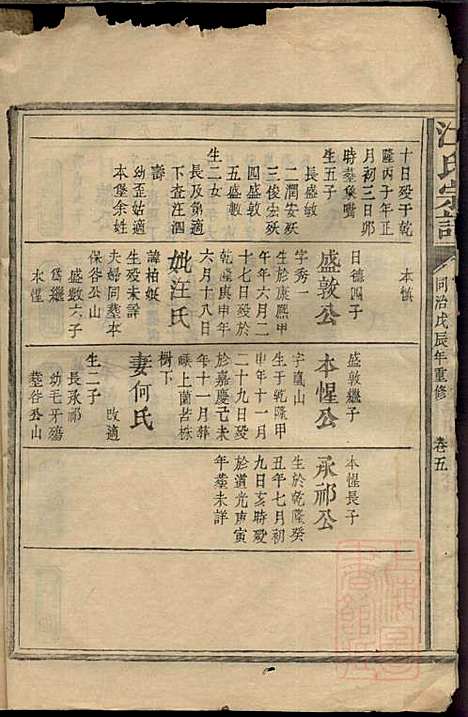 江氏宗譜
同治戊辰年重修
卷五
十日歿于乾
隆丙子年正
月初三日卯
時塟象嘴
生五子
長盛敏
二潤安妖
三俊宏妖
四盛敦
五盛數
生二女
長及第適
下查汪泗
壽
幼歪姑適
本堡余姓
本慎
日德四子
盛敦公
字秀一
生於康熙甲
午年六月二
十七日歿於
乾隆庚申年
六月十八日
妣汪氏
諱柏娘
生歿未詳
夫婦同塟本
保谷公山
盛數六子
爲繼
本惺
盛敦繼子
本惺公
字嵐山
生于乾隆甲
申年十一月
二十九日歿
於嘉慶己未
年十一月葬
嶺上蘭苦株
樹下
妻何氏
改適
生二子
長承祁
幼毛牙殤
塟谷公山
本惺長子
承祁公
生於乾隆癸
丑年七月初
九日亥時歿
於道光庚寅
年塟未詳